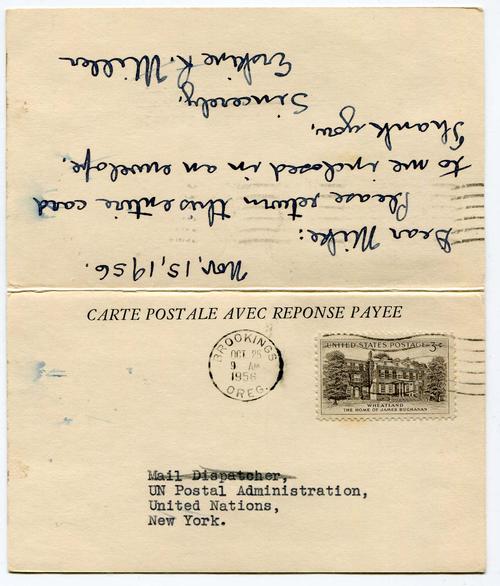 Nov, 15, 1956.
Dear Mike:
Please return this entire card
to me inclosed in an envelope.
Thank you,
Sincerely,
Erskine R. Miller
CARTE POSTALE AVEC REPONSE PAYEE
BROOKINGS
OCT 25
9 AM
1956
OREG.
UNITED STATES POSTAGE 3¢
WHEATLAND
THE HOME OF JAMES BUCHANAN
Mail Dispatcher,
UN Postal Administration,
United Nations,
New York.